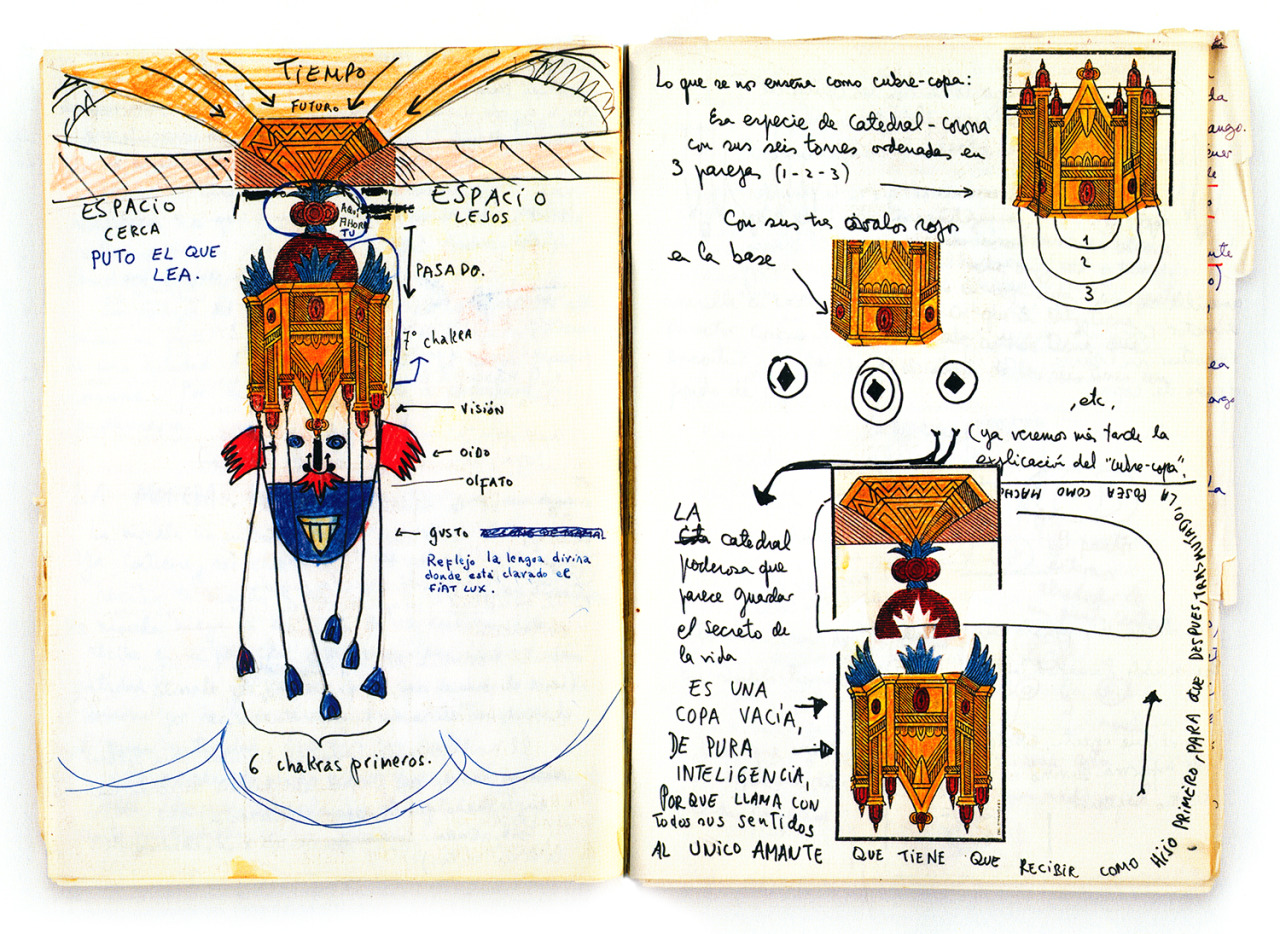 TIEMPO
FUTURO
ESPACIO
CERCA
PUTO EL QUE
LEA.
AQUÍ
AHORA
TU
ESPACIO
LEJOS
PASADO.
7º chakRA
VISIÓN
OIDO
OLFATO
GUSTO
Reflejo la lengua divina
donde está clavado el
FIAT LUX.
6 chakras primeros.
Lo que se nos enseña como cubre-copa:
Esa especie de catedral-corona
con sus seis torres ordenadas en
3 parejas (1-2-3)
1
2
3
Con sus tres óvalos rojos
en la base
, etc,
(ya veremos más tarde la
explicación del "cubre-copa".
LA
Esta catedral
poderosa que
parece guardar
el secreto de
la vida
ES UNA
COPA VACÍA,
DE PURA
INTELIGENCIA,
PORQUE LLAMA CON
TODOS sus sentidos
AL UNICO AMANTE QUE TIENE QUE RECIBIR COMO HIJO PRIMERO, PARA QUE DESPUES, TRANSMUTADO, LA POSEA COMO MACHO